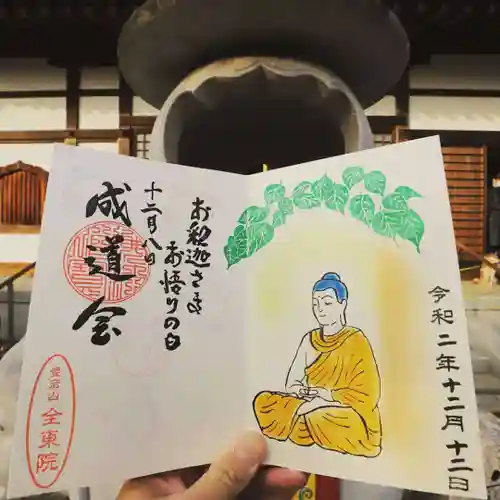 令和二年十二月十二日
お釈迦さま
お悟りの日
十二月八日
成道会
全東院